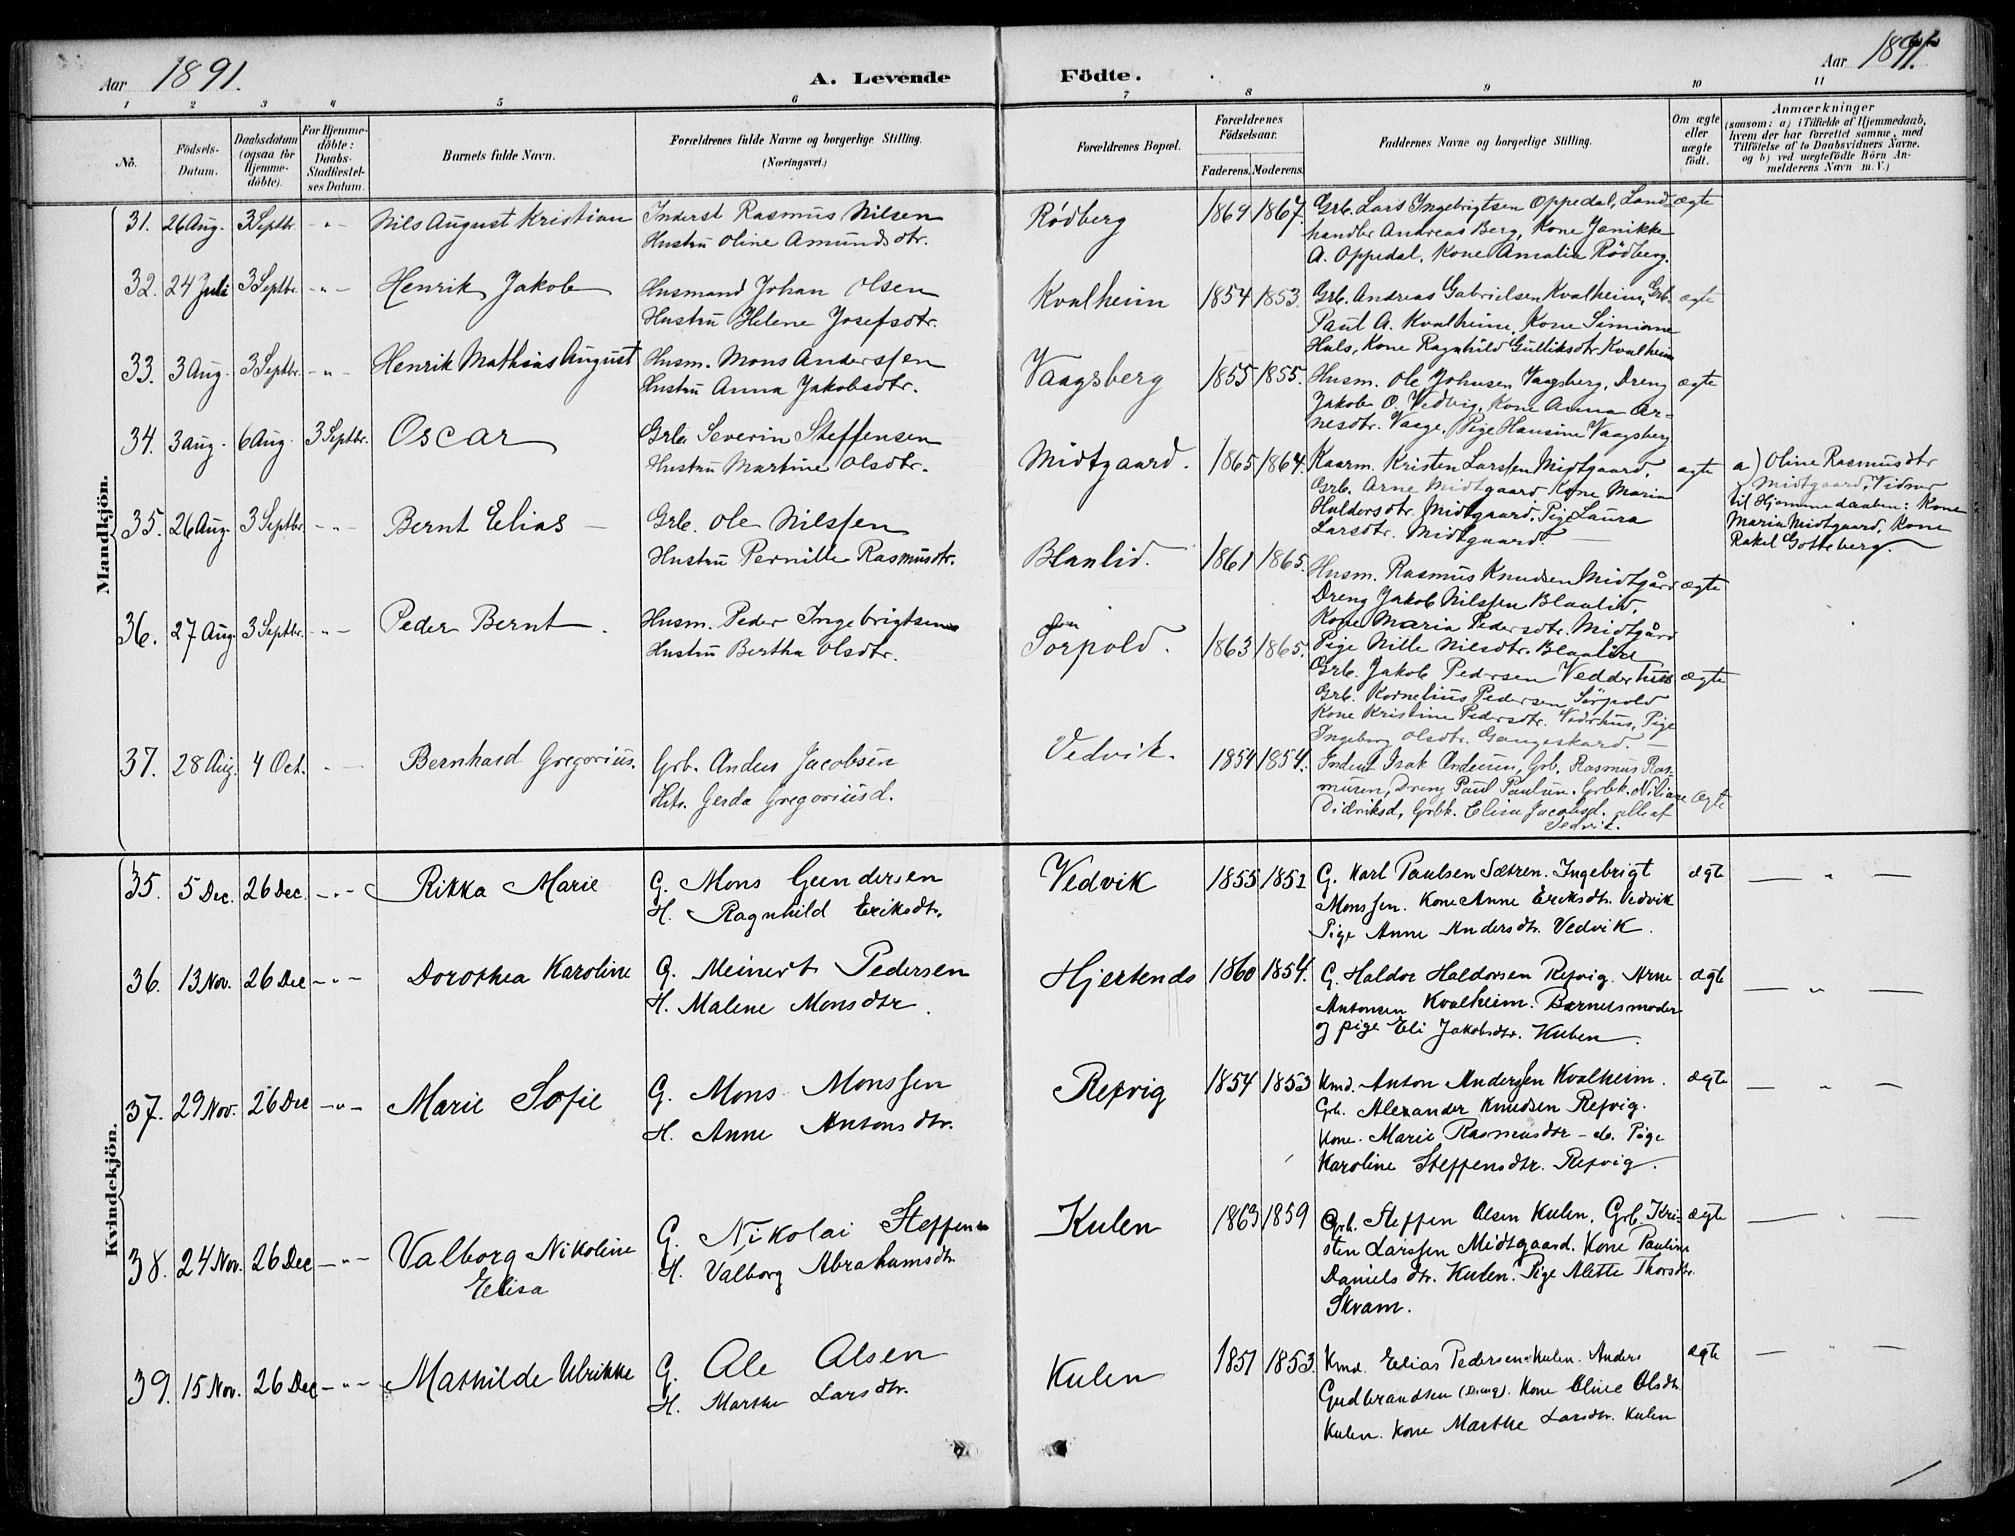 Aar 1891.
A. Levende
Födte.
Aar 1891.
1 2 3 4 5 6 7 8 9 10 11
No.
Födsels-Datum.
Daabsdatum (ogsaa for Hjemmedöbte).
For Hjemmedöbte: Daabs-Stadfæstelses Datum.
Barnets fulde Navn.
Forældrenes fulde Navne og borgerlige Stilling. (Næringsvei.)
Forældrenes Bopæl.
Forældrenes Födselsaar.
Faderens. Moderens.
Faddernes Navne og borgerlige Stilling.
Om ægte eller uægte födt.
Anmærkninger (saasom: a) i Tilfælde af Hjemmedaab, hvem der har forrettet samme, med Tilföielse af to Daabsvidners Navne, og b) ved uægtefödte Börn Anmelderens Navn m. V.)
Mandkjön.
31. 26 Aug. 3 Septbr. -"- Nils August Kristian Inderst Rasmus Nilsen
Hustru Oline Amundsdtr. Rödberg 1869 1867. Grb. Lars Ingebrigtsen Oppedal, Land-
handler Andreas Berg, Kone Janikke
A. Oppedal, Kone Amalia Rödberg. ægte
32. 24 Juli 3 Septbr. -"- Henrik Jakob Husmand Johan Olsen
Hustru Helene Josefsdtr. Kvalheim 1854 1853. Grb. Andreas Gabrielsen Kvalheim, Grb.
Paul A. Kvalheim, Kone Simione
Hals, Kone Ragnhild Gulliksdtr. Kvalheim ægte
33. 3 Aug. 3 Septbr. -"- Henrik Mathias August Husm. Mons Anderssen
Hustru Anna Jakobsdtr. Vaagsberg 1855 1855. Husm. Ole Johnsen Vaagsberg, Dreng
Jakob O. Vedvig, Kone Anna Ar-
nesdtr. Vaage, Pige Hansine Vaagsberg ægte
34. 3 Aug. 6 Aug. 3 Septbr. Oscar Grb. Severin Steffensen
Hustru Martine Olsdtr. Midtgaard. 1865 1864. Kaarm. Kristen Larssen Midtgaard,
Grb. Arne Midtgaard, Kone Maria
Haldersdtr. Midtgaard, Pige Laura
Larsdtr. Midtgaard. ægte a) Oline Rasmusdtr
Midtgaard, Vidner
til Hjemmedaaben: Kone
Maria Midtgaard, Kone
Rakel Gotteberg.
35. 26 Aug. 3 Septbr. -"- Bernt Elias Grb. Ole Nilssen
Hustru Pernille Rasmusdtr. Blaalid. 1861 1865. Husm. Rasmus Knudsen Midtgård
Dreng Jakob Nilssen Blaalid,
Kone Maria Pedersdtr. Midtgård
Pige Nille Nilsdtr. Blaalid ægte
36. 27 Aug. 3 Septbr. -"- Peder Bernt Husm. Peder Ingebrigtsen
Hustru Bertha Olsdtr. Sörpold. 1863 1865. Grb. Jakob Pedersen Vedderhus
Grb. Kornelius Pedersen Sörpold
Kone Kristine Pedersdtr. Vedrhus, Pige
Ingeborg Olsdtr. Gangeskard. ægte
37. 28 Aug. 4 Oct. Bernhard Gregorius. Grb. Anders Jacobsen
Hst. Gerda Gregoriusd. Vedvik. 1854 1854. Inderst Isak Andersen, Grb. Rasmus Ras-
musen, Dreng Paul Paulsen. Grbk. Niliane
Didriksd, Grbk. Elisa Jacobsd. alle af
Vedvik. Ægte
Kvindekjön.
35. 5 Dec. 26 Dec. -"- Rikka Marie G. Mons Gundersen
H. Ragnhild Eriksdtr. Vedvik 1855 1851 G. Karl Paulsen Sætren. Ingebrigt
Monssen. Kone Anne Eriksdtr. Vedvik
Pige Anne Andersdtr. Vedvik. ægte — " —
36. 13 Nov. 26 Dec -"- Dorothea Karoline G. Meinert Pedersen
H. Malene Monsdtr. Hjertenæs 1860 1854. G. Haldor Haldorsen Refvig. Arne
Antonsen Kvalheim. Barnets moder
og pige Eli Jakobsdtr. Kulen. ægte — " —
37. 29 Nov. 26 Dec -"- Marie Sofie G. Mons Monssen
H. Anne Antonsdtr. Refvig 1854 1853 Kmd. Anton Anderssen Kvalheim.
Grb. Alexander Knudsen Refvig.
Kone. Marie Rasmusdtr - do. Pige
Karoline Steffensdtr. Refvig. ægte — " —
38. 24 Nov. 26 Dec -"- Valborg Nikoline
Elisa G. Nikolai Steffens
H. Valborg Abrahamsdtr. Kulen 1863 1859 Grb. Steffen Olsen Kulen. Grb. Kri-
sten Larssen Midtgaard. Kone Pauline
Daniels dtr. Kulen. Pige Alette Thorsdtr.
Skram. ægte
39. 15 Nov. 26 Dec -"- Mathilde Ulrikke G. Ole Olsen
H. Marthe Larsdtr. Kulen 1851 1853. Kmd. Elias Pedersen Kulen. Anders
Gudbrandsen (Dreng). Kone Oline Olsdtr.
Kulen. Kone Marthe Larsdtr. Kulen ægte